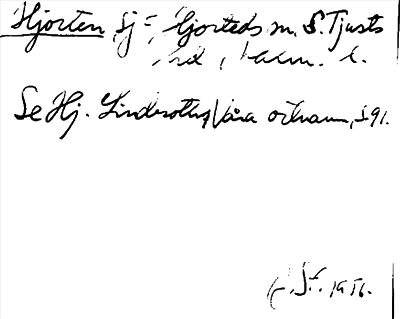 Hjorten, sj = , Hjorteds sn, S. Tjusts
hd, Kalm. l.
Se Hj. Lindroth, Våra ortnamn, s 91.
1956.